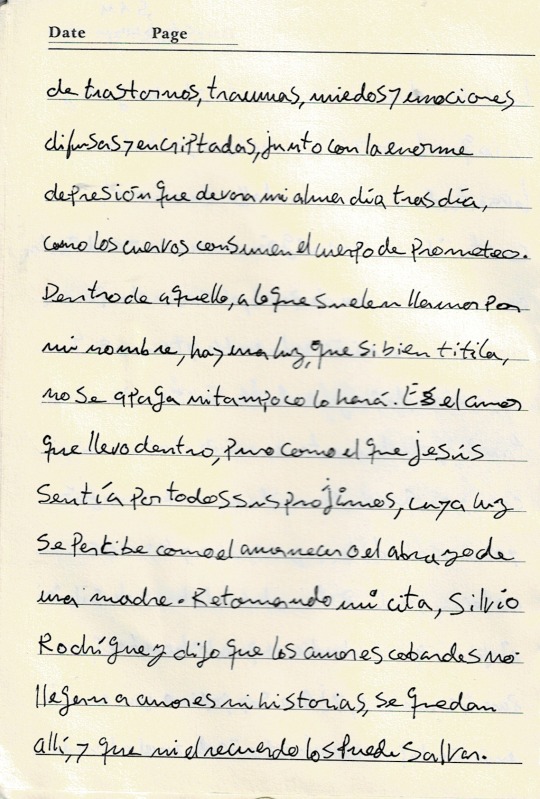 Date Page
de trastornos, traumas, miedos y emociones
difusas y encriptadas, junto con la enorme
depresión que devora mi alma día tras día,
como los cuervos consumen el cuerpo de Prometeo.
Dentro de aquello, a lo que suelen llamar por
mi nombre, hay una luz, que si bien titila,
no se apaga ni tampoco lo hará. Es el amor
que llevo dentro, puro como el que jesús
sentía por todos sus prójimos, cuya luz
se percibe como el amanecer o el abrazo de
una madre. Retomando mi cita, Silvio
Rodríguez dijo que los amores cobardes no
llegan a amores ni historias, se quedan
allí, y que ni el recuerdo los puede salvar.